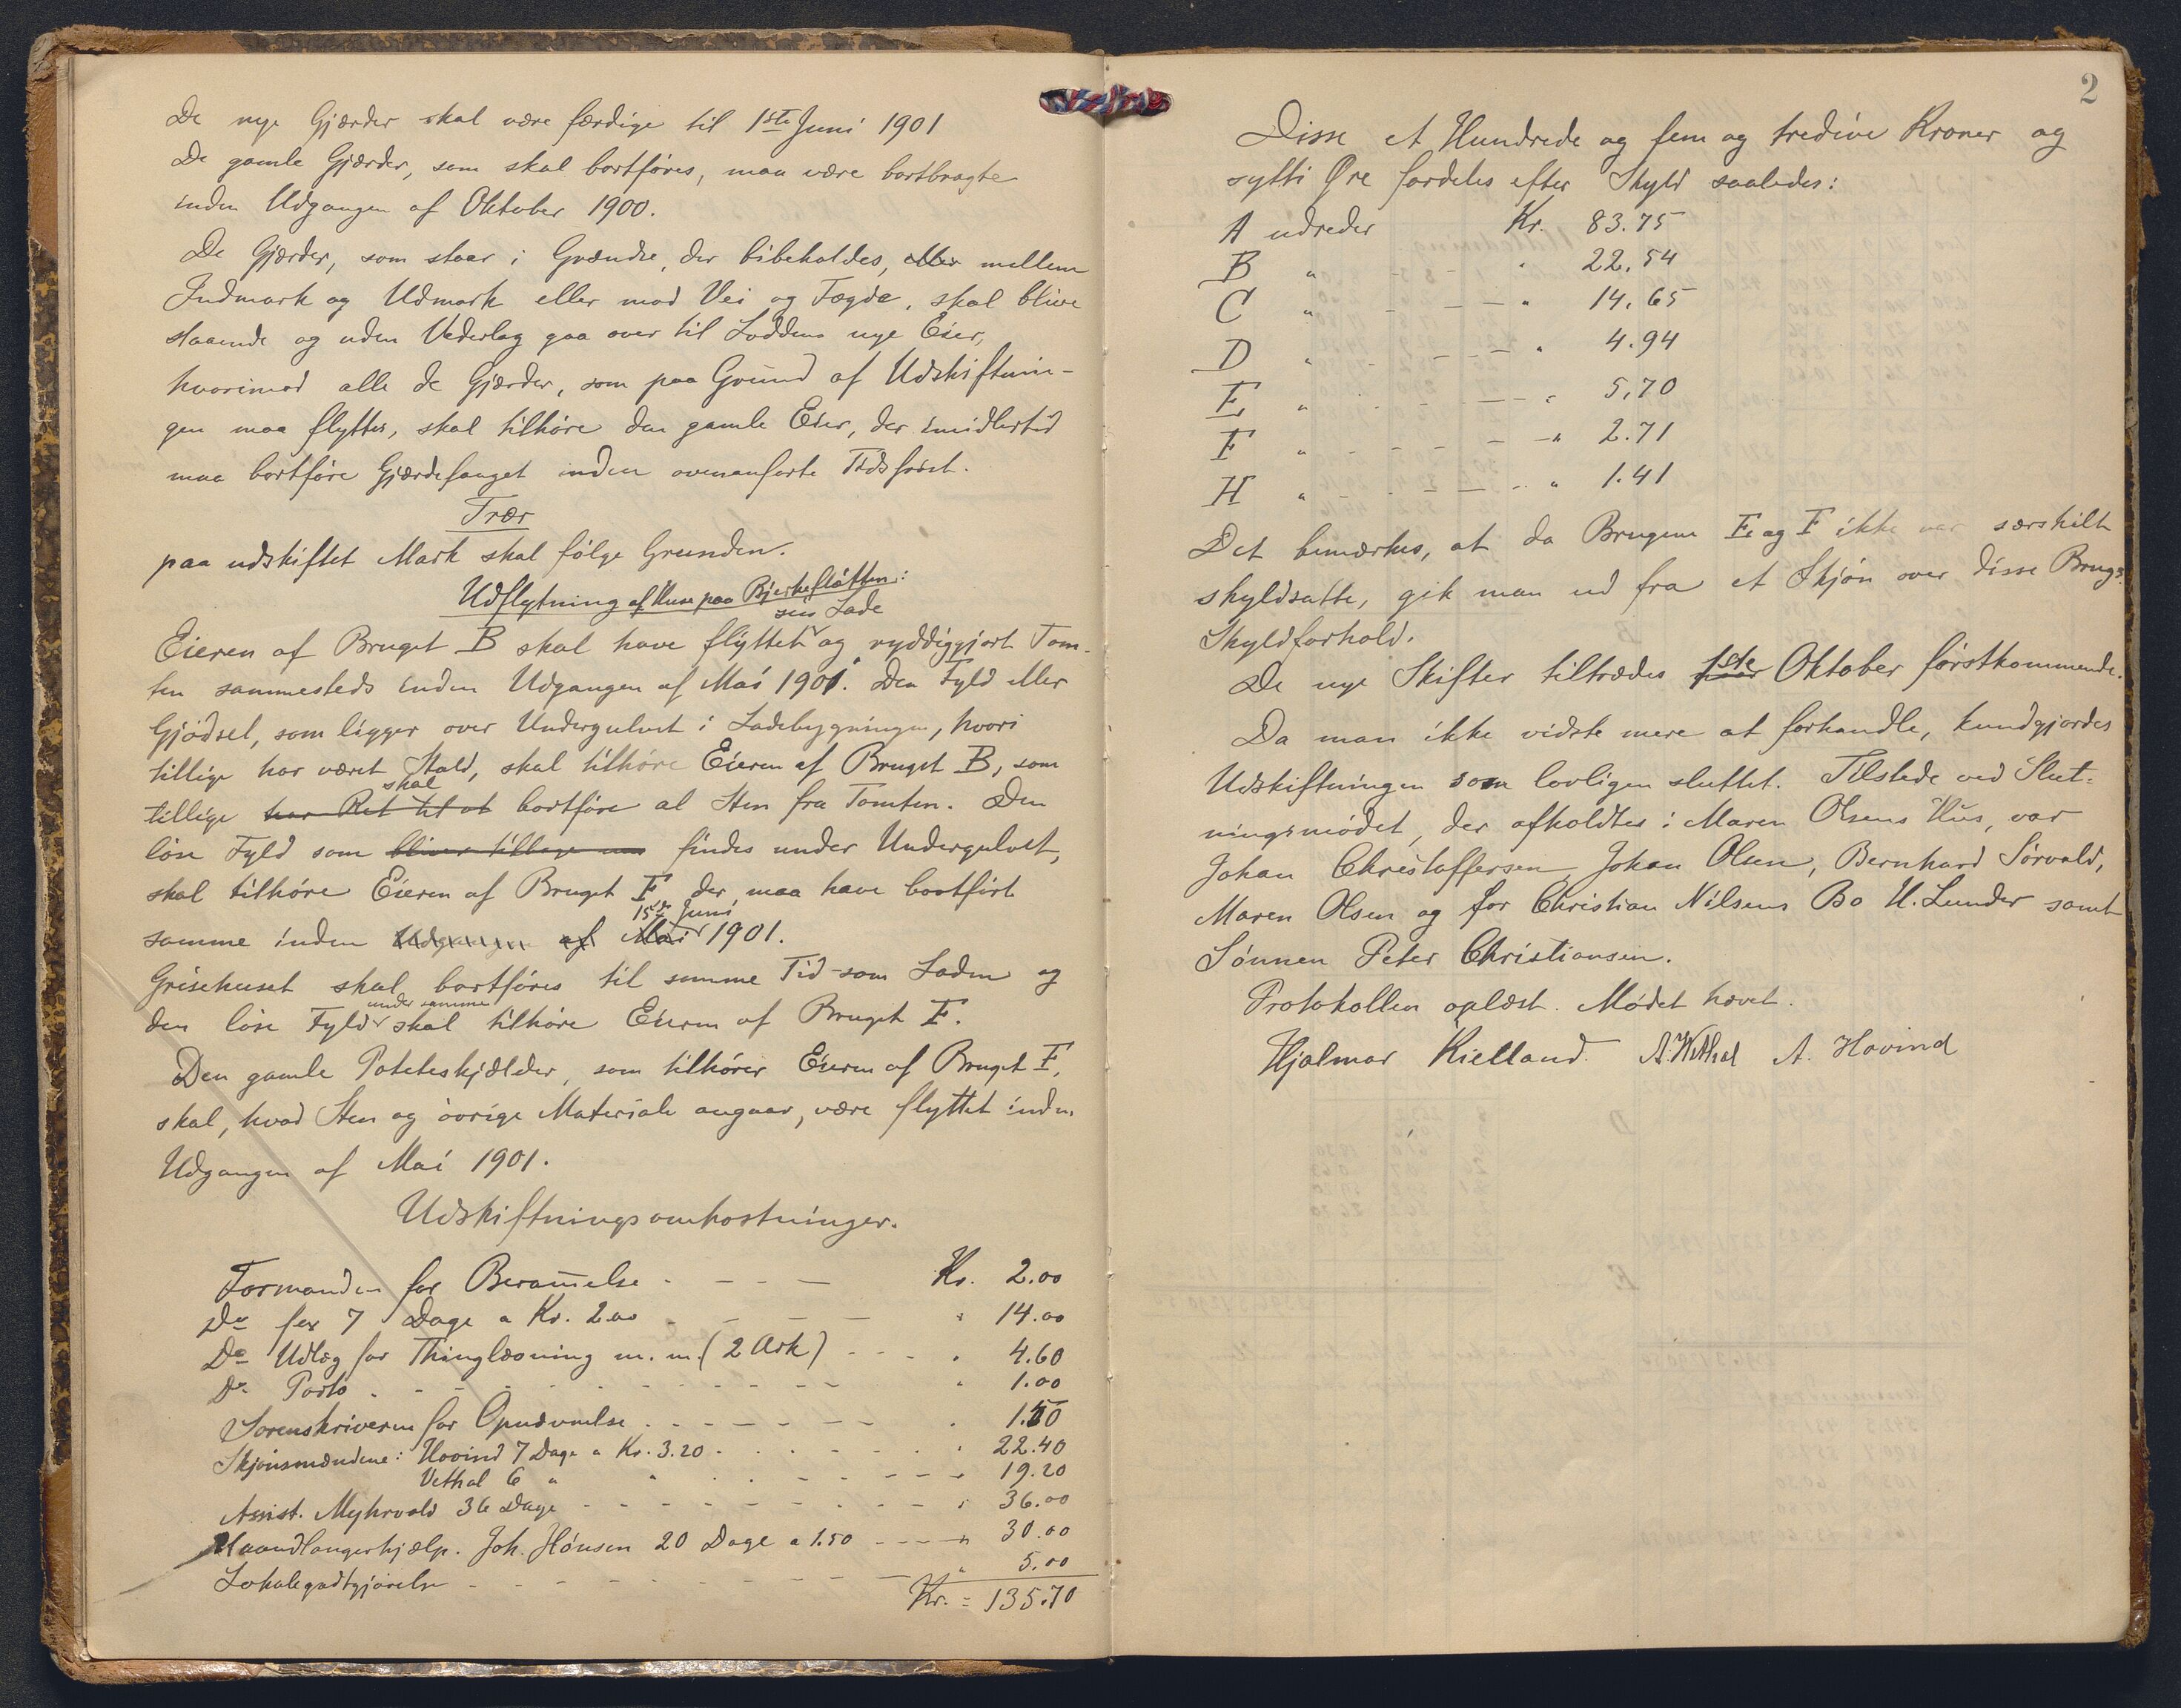 De nye Gjærder skal være færdige til 1ste Juni 1901
De gamle Gjærder, som skal bortføres, maa være bortbragte
inden Udgangen af Oktober 1900.
De Gjærder, som staar i Grændse, der bibeholdes, eller mellem
Indmark og Udmark eller mod Vei og Fægde, skal blive
staaende og uden Vederlag gaa over til Loddens nye Eier,
hvorimod alle de Gjærder, som paa Grund af Udskiftnin-
gen maa flyttes, skal tilhøre den gamle Eier, der imidlertid
maa bortføre Gjærdefanget inden ovenanførte Tidsfrist.
Trær
paa udskiftet Mark skal følge Grunden.
Udflytning af Huse paa Bjerkeflåtten:
sin Lade
Eieren af Bruget B skal have flyttet og ryddiggjort Tom-
ten sammesteds inden Udgangen af Mai 1901. Den Fyld eller
Gjødsel, som ligger over Undergulvet i Ladebygningen, hvori
tillige har været Stald, skal tilhøre Eieren af Bruget B, som
skal
tillige har Ret til at bortføre al Sten fra Tomten. Den
løse Fyld som bliver tilbage findes under Undergulvet,
skal tilhøre Eieren af Bruget F, der maa have bortført
15de Juni
samme inden Udgangen af Mai 1901.
Grisehuset skal bortføres til samme Tid som Laden og
under samme
den løse Fyld skal tilhøre Eieren af Bruget F.
Den gamle Poteteskjælder, som tilhører Eieren af Bruget F,
skal, hvad Sten og øvrige Materiale angaar, være flyttet inden
Udgangen af Mai 1901.
Udskiftningsomkostninger.
Formanden for Berammelse - - - — Kr. 2.00
Do for 7 Dage a Kr. 2.00 - - - — " 14.00
Do Udlæg for Thinglæsning m. m. (2 Ark) - - - " 4.60
Do Porto - - - - - - - - - " 1.00
Sorenskriveren for Opnævnelse - - - - - - " 1.50
Skjønsmændene: Hovind 7 Dage a Kr. 3.20 - - - - - " 22.40
Vethal 6 " " - - - - - " 19.20
Assist. Myhrvold 36 Dage - - - - - - - - " 36.00
Haandlangerhjælp. Joh. Hansen 20 Dage a 1.50 - - - - " 30.00
Lokalegodtgjørelse - - - - - - - - " 5.00
Kr. = 135.70
2
Disse et Hundrede og fem og tredive Kroner og
sytti Øre fordeles efter Skyld saaledes:
A udreder Kr. 83.75
B " - - - " 22.54
C " - - — " 14.65
D " - - - — " 4.94
E " - - - — " 5.70
F " - - - - — " 2.71
H " - - - — - " 1.41
Det bemærkes, at da Brugene E og F ikke var særskilt
skyldsatte, gik man ud fra et Skjøn over disse Brugs
Skyldforhold.
De nye Skifter tiltrædes 1ste Oktober førstkommende.
Da man ikke vidste mere at forhandle, kundgjordes
Udskiftningen som lovligen sluttet. Tilstede ved Slut-
ningsmødet, der afholdtes i Maren Olsens Hus, var
Johan Christoffersen, Johan Olsen, Bernhard Sørvald,
Maren Olsen og for Christian Nilsens Bo U. Lunder samt
Sønnen Peter Christiansen.
Protokollen oplæst. Mødet hævet.
Hjalmar Kielland. A. Wethal A. Hovind